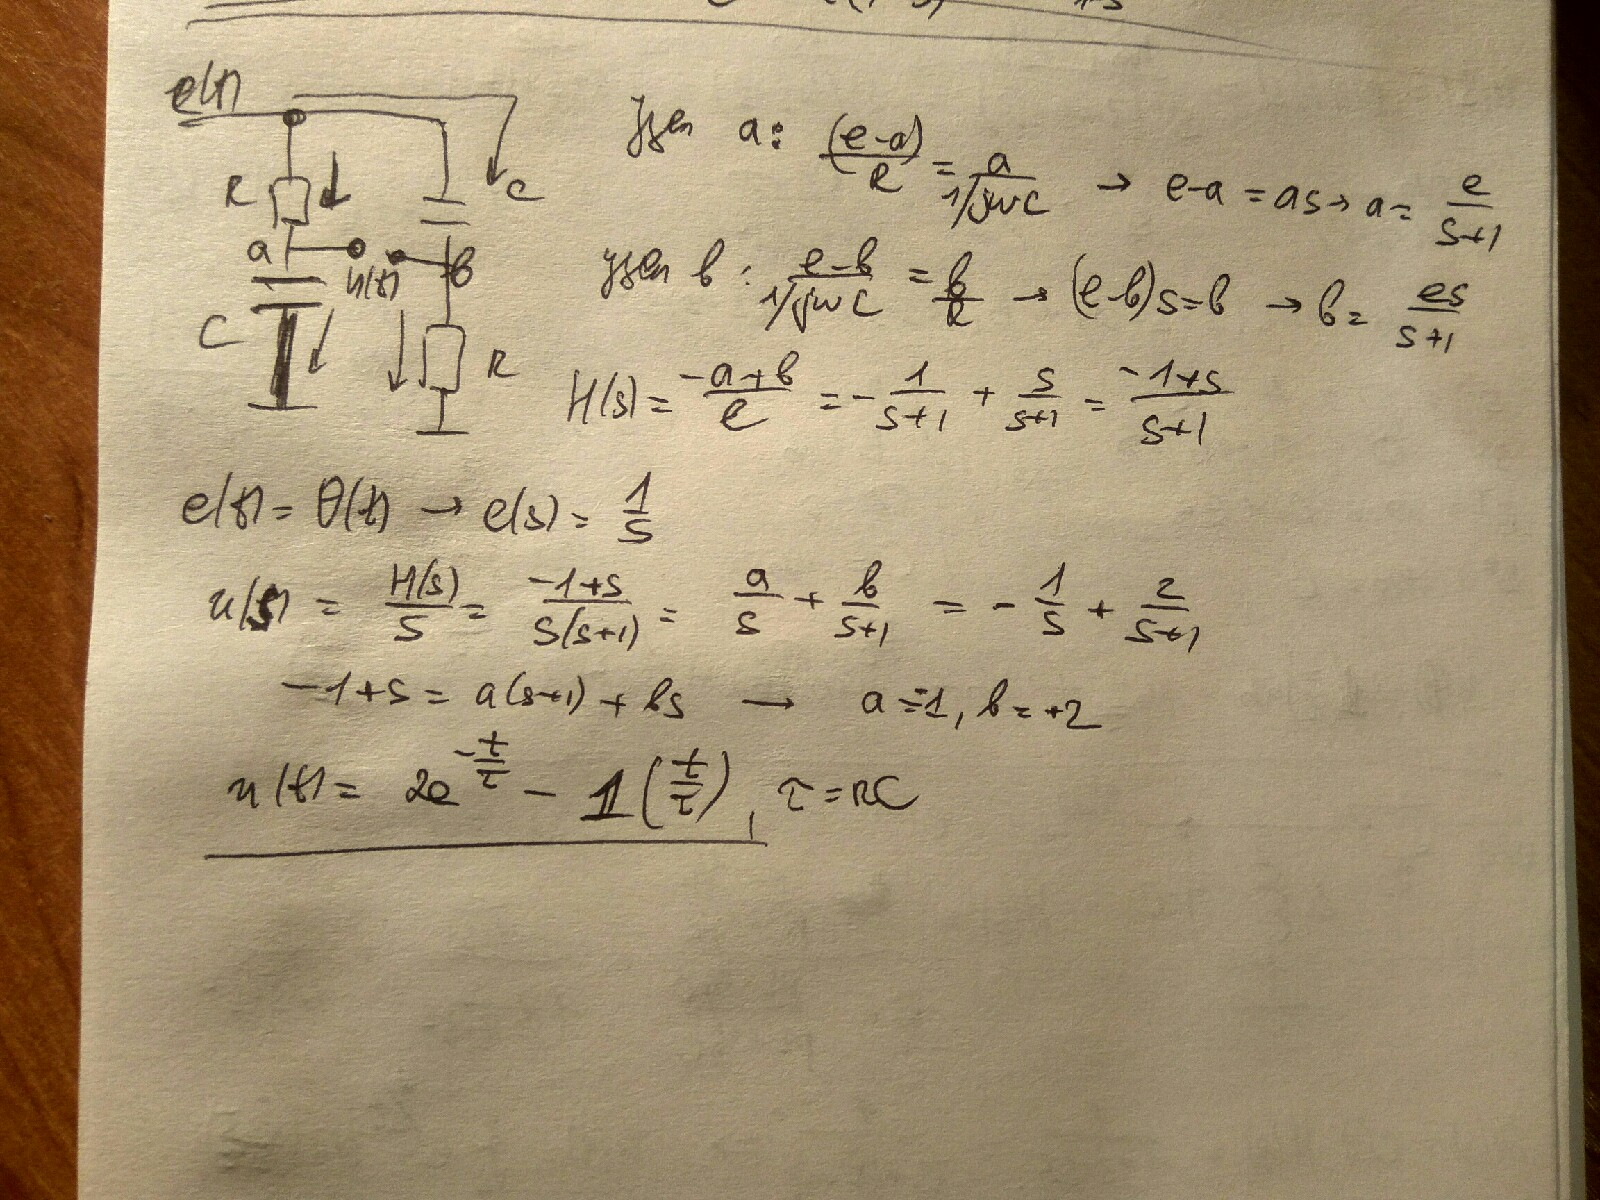 e(t)
R
C
a
u(t)
b
C
R
Узел a: (e-a)/R = a/(1/jwC) → e-a = as → a = e/(s+1)
узел b: (e-b)/(1/jwC) = b/R → (e-b)s = b → b = es/(s+1)
H(s) = (-a+b)/e = -1/(s+1) + s/(s+1) = (-1+s)/(s+1)
e(t) = θ(t) → e(s) = 1/s
u(s) = H(s)/s = (-1+s)/(s(s+1)) = a/s + b/(s+1) = -1/s + 2/(s+1)
-1+s = a(s+1) + bs → a = -1, b = +2
u(t) = 2e^(-t/τ) - 1(t/τ), τ = RC